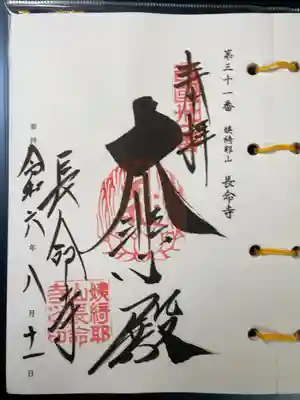 第三十一番 姨綺耶山 長命寺
奉拝
大悲殿
長命寺
令和六年八月十一日
姨綺耶
山長命
寺之印